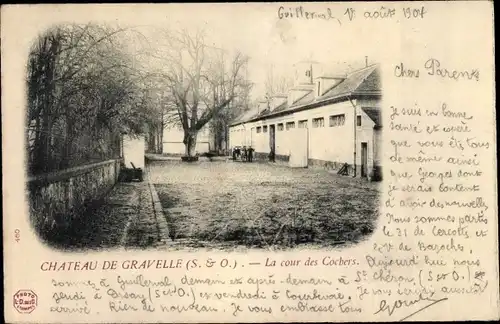 Guillerval, 1er août 1904
Chers Parents
Je suis en bonne
santé et espère
que vous êtes
de même ainsi
que Georges dont
je serais content
d'avoir des nouvelles
Nous sommes partis
le 31 de Cercottes
et
de Bazoches.
Aujourd'hui nous
CHATEAU DE GRAVELLE (S. & O.). — La cour des Cochers.
sommes à Guillerval demain et après-demain à St Chéron (S et O)
jeudi à Orsay (S et O) et vendredi à Courbevoie, je vous écrirai
arrivé. Rien de nouveau. Je vous embrasse tous